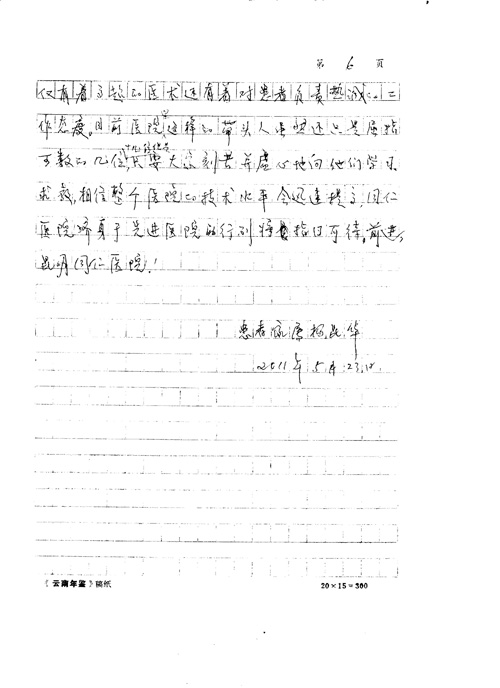 第 6 页
仅有着高超的医术还有着对患者负责热诚的工
作态度。目前医院里这样的带头人虽然还只是屈指
可数的几位,只要大家刻苦并虚心地向他们学习
求教,相信整个医院的技术水平会迅速提高,同仁
医院跻身于先进医院的行列将指日可待。前进,
昆明同仁医院!
患者家属 杨昆华
2011年5月23日
《云南年鉴》稿纸 20×15=300